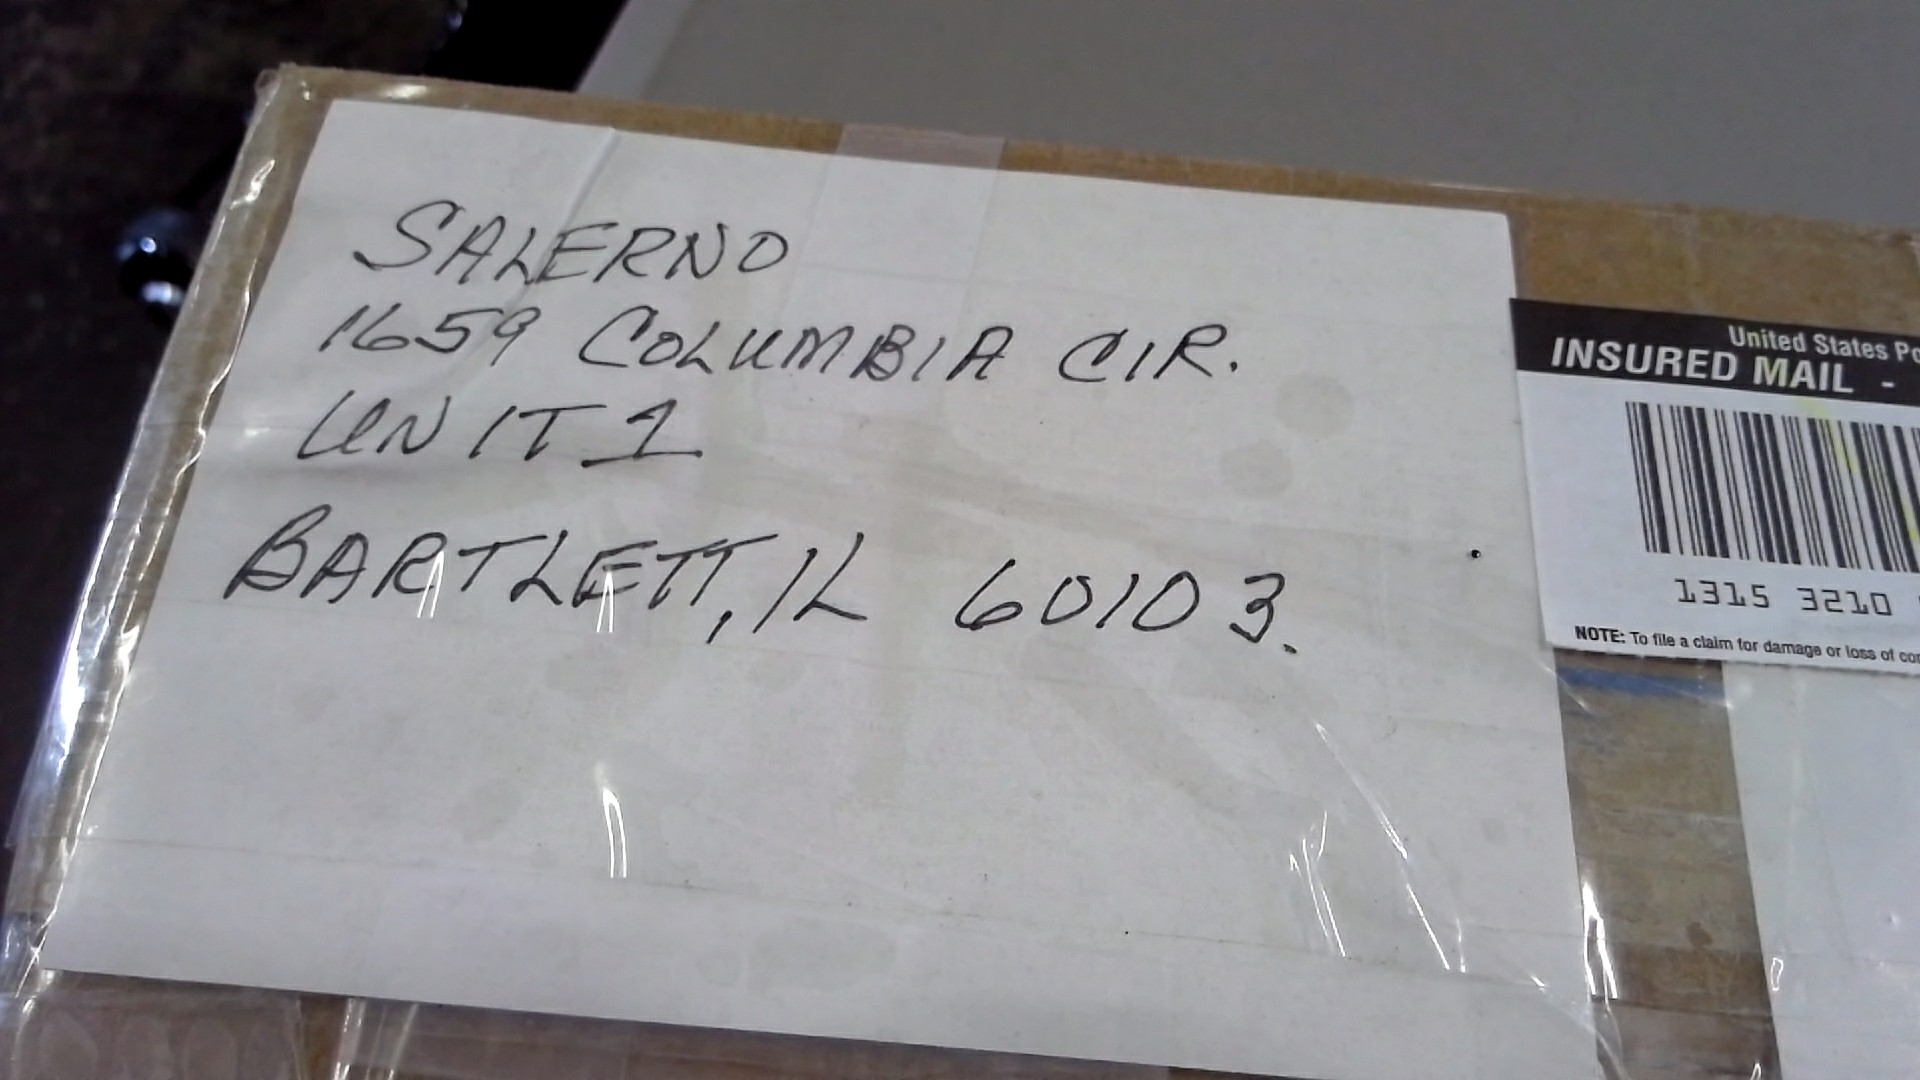 SALERNO
1659 COLUMBIA CIR.
UNIT 1
BARTLETT, IL 60103.
United States
INSURED MAIL -
1315 3210
NOTE: To file a claim for damage or loss of